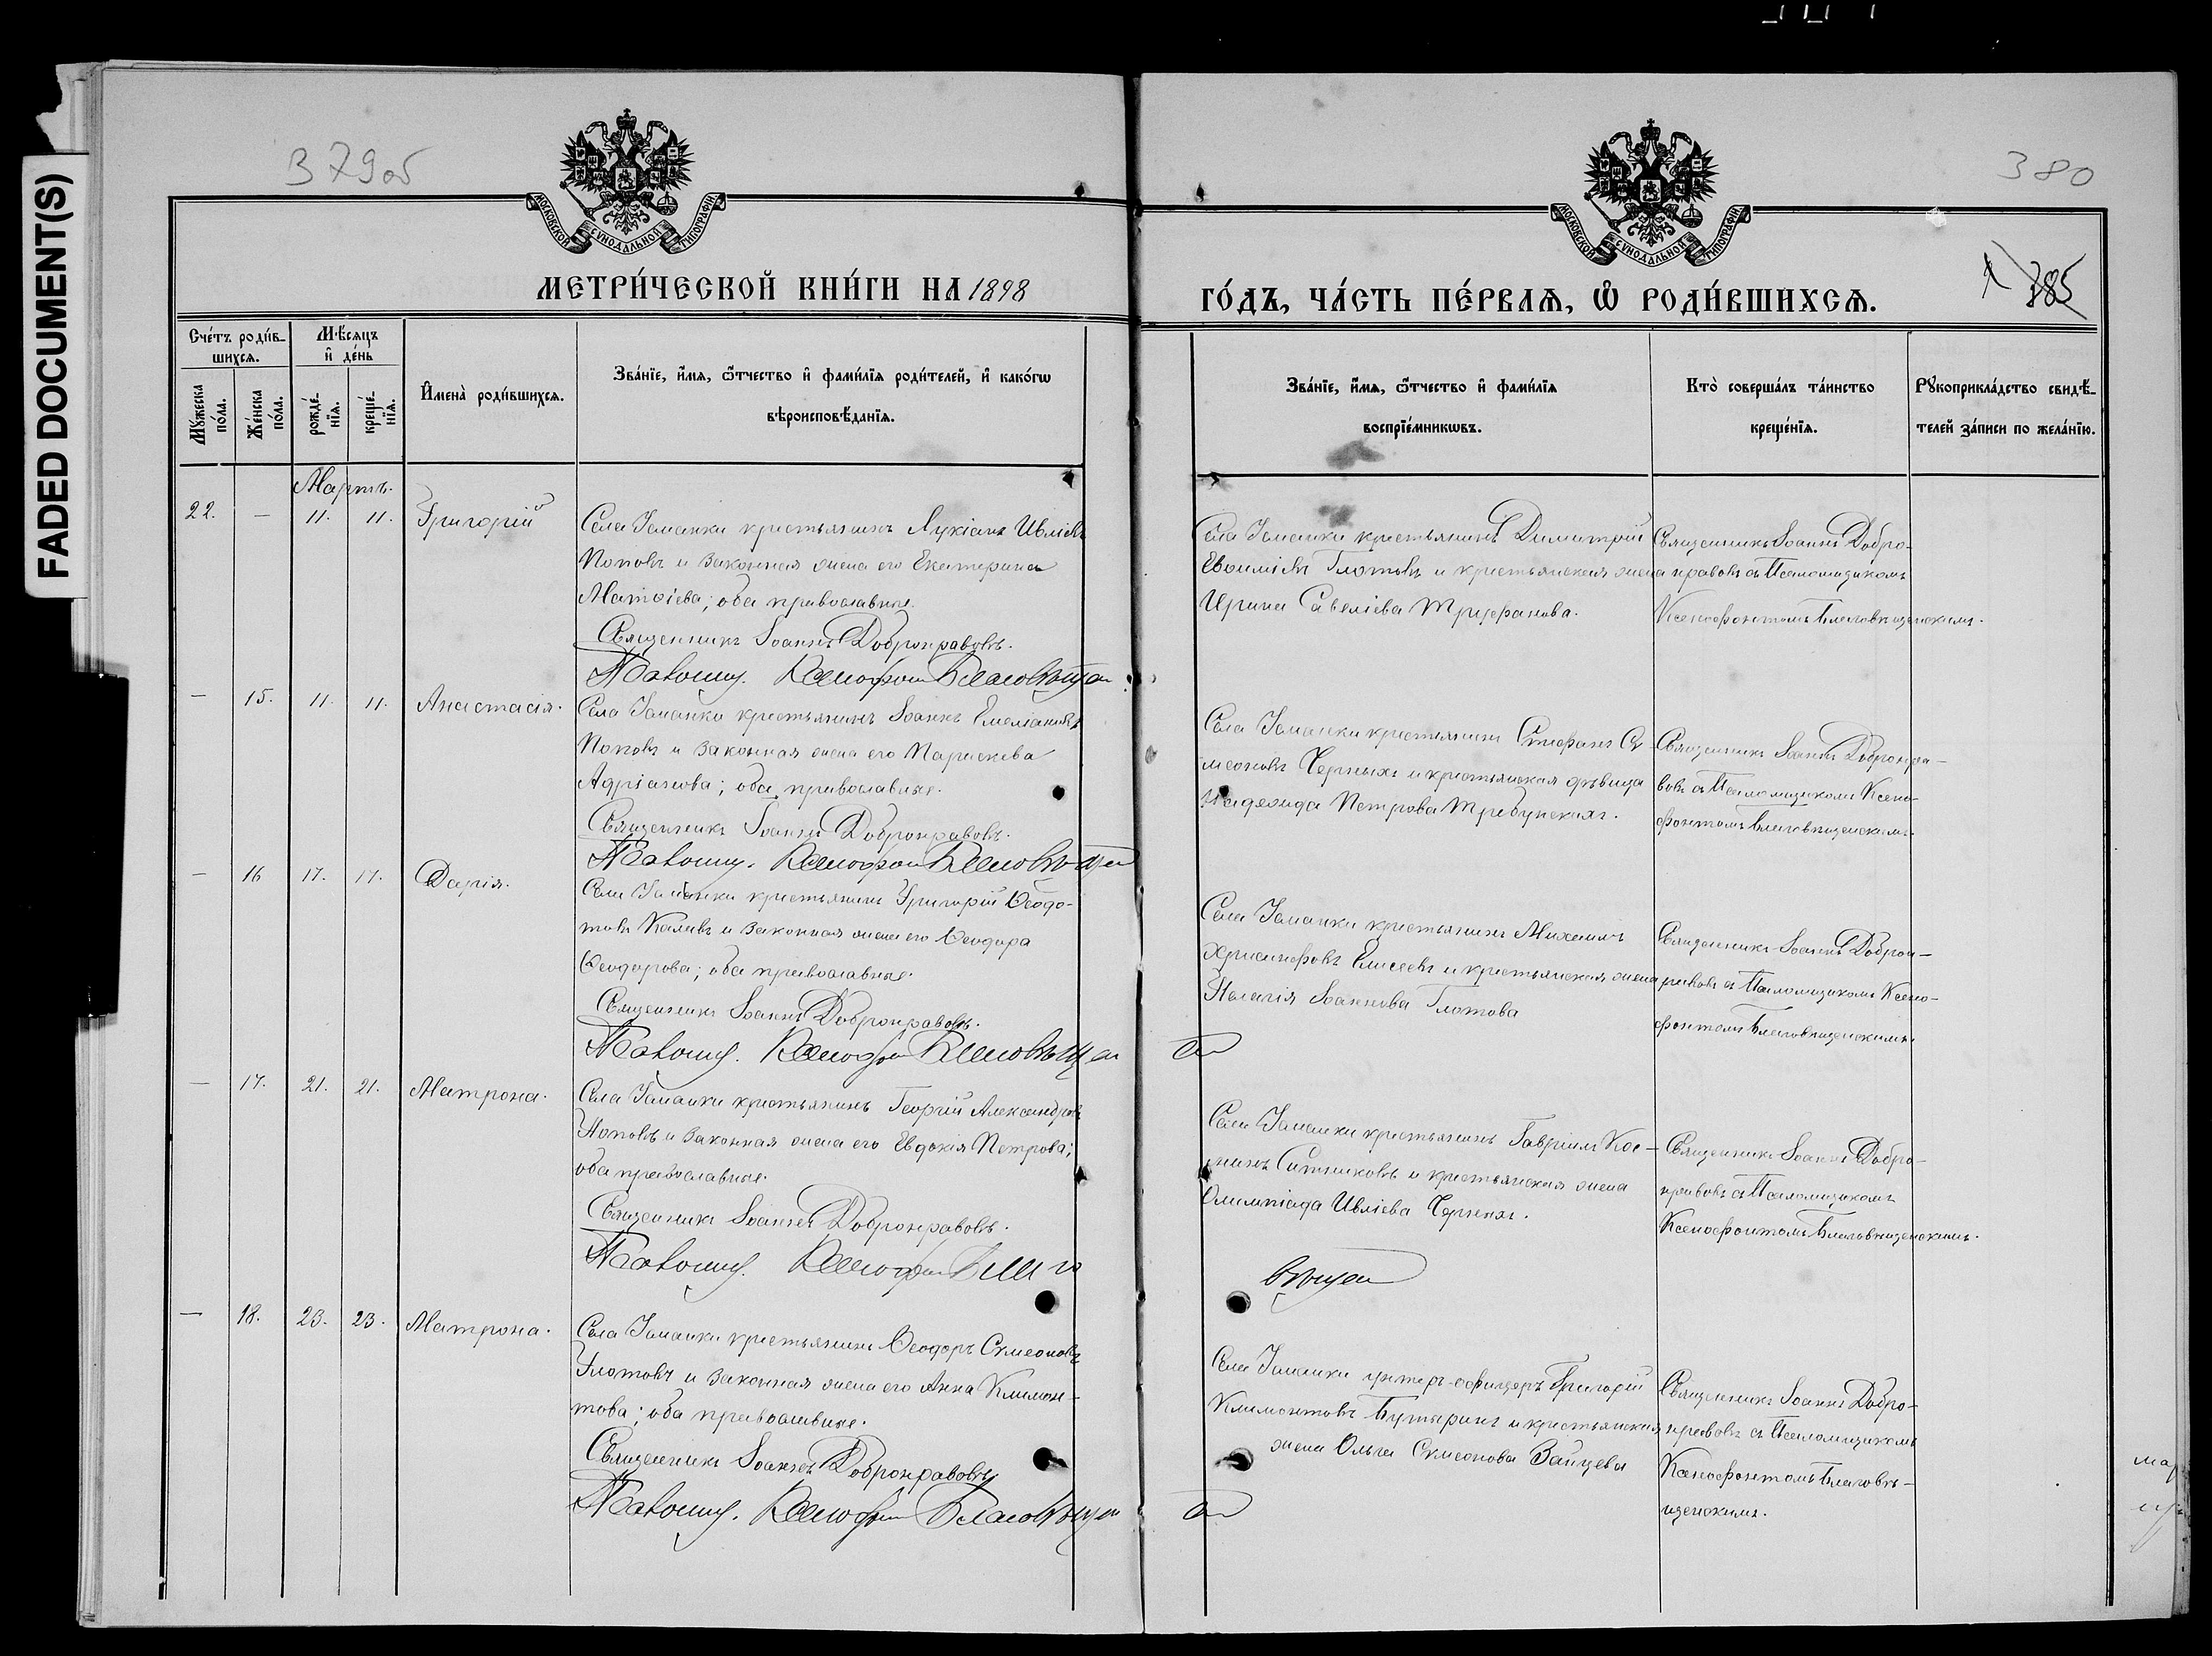 FADED DOCUMENT(S)
379об
380
МОСКОВСКОЙ СѴНОДАЛЬНОЙ ТИПОГРАФІИ
МОСКОВСКОЙ СѴНОДАЛЬНОЙ ТИПОГРАФІИ
МЕТРИ́ЧЕСКОЙ КНИ́ГИ НА 1898
ГО́ДЪ, ЧА́СТЬ ПЕ́РВАѦ, Ѡ҆ РОДИ́ВШИХСѦ.
385
Сче́тъ роди́в-
шихсѧ.
Мѣ́сѧцъ
и҆ де́нь
Мꙋ́жеска по́ла.
Же́нска по́ла.
рожде́-
нїѧ.
креще́-
нїѧ.
И҆мена̀ роди́вшихсѧ.
Зва́нїе, и҆́мѧ, ѻ҆́тчество и҆ фами́лїѧ роди́телей, и҆ како́гѡ
вѣроисповѣ́данїѧ.
Зва́нїе, и҆́мѧ, ѻ҆́тчество и҆ фами́лїѧ
воспрїе́мникѡвъ.
Кто̀ соверша́лъ та́инство
креще́нїѧ.
Рꙋкоприкла́дство свидѣ́-
телей за́писи по жела́нїю.
Мартъ.
22. — 11. 11. Григорій
Села Гаманки крестьянинъ Лукіанъ Ивліевъ
Поповъ и законная жена его Екатерина
Матѳіева; оба православные.
Священникъ Іоаннъ Доброправовъ.
Псаломщ. Ксенофон Благовѣщен
Села Гаманки крестьянинъ Димитрій
Евѳиміевъ Глотовъ и крестьянская жена
Ирина Савеліева Трифанова.
Священникъ Іоаннъ Добро-
нравовъ съ Псаломщикомъ
Ксенофонтомъ Благовѣщенскимъ.
— 15. 11. 11. Анастасія.
Села Гаманки крестьянинъ Іоаннъ Емеліановъ
Поповъ и законная жена его Параскева
Адріанова; оба православные.
Священникъ Іоаннъ Добронравовъ.
Псаломщ. Ксенофон Благовѣщен
Села Гаманки крестьянинъ Стефанъ Сѵ-
меоновъ Черныхъ и крестьянская дѣвица
Надежда Петрова Трибунскихъ.
Священникъ Іоаннъ Добронра-
вовъ съ Псаломщикомъ Ксено-
фонтомъ Благовѣщенскимъ.
— 16 17. 17. Дарія.
Села Гаманки крестьянинъ Григорій Ѳеодо-
товъ и законная жена его Ѳеодора
Ѳеодорова; оба православные.
Священникъ Іоаннъ Добронравовъ.
Псаломщ. Ксенофон Благовѣщен
Села Гаманки крестьянинъ Михаилъ
Хрисанфовъ Елисеевъ и крестьянская жена
Пелагія Іоаннова Глотова
Священникъ Іоаннъ Доброн-
равовъ съ Псаломщикомъ Ксено-
фонтомъ Благовѣщенскимъ.
— 17. 21. 21. Матрона.
Села Гаманки крестьянинъ Георгій Александровъ
Поповъ и законная жена его Евдокія Петрова;
оба православные.
Священникъ Іоаннъ Добронравовъ.
Псаломщ. Ксенофон Благо
вѣщен
Села Гаманки крестьянинъ Гавріилъ Кос-
минъ Ситниковъ и крестьянская жена
Олимпіада Ивліева Черныхъ.
Священникъ Іоаннъ Добро-
нравовъ съ Псаломщикомъ
Ксенофонтомъ Благовѣщенскимъ.
— 18. 23. 23. Матрона.
Села Гаманки крестьянинъ Ѳеодоръ Сѵмеоновъ
Глотовъ и законная жена его Анна Климен-
това; оба православные.
Священникъ Іоаннъ Добронравовъ
Псаломщ. Ксенофон Благовѣщен
Села Гаманки унтеръ-офицеръ Григорій
Климентовъ Бутыринъ и крестьянская
жена Ольга Сѵмеонова Зайцева
Священникъ Іоаннъ Добро-
нравовъ съ Псаломщикомъ
Ксенофонтомъ Благовѣ-
щенскимъ.